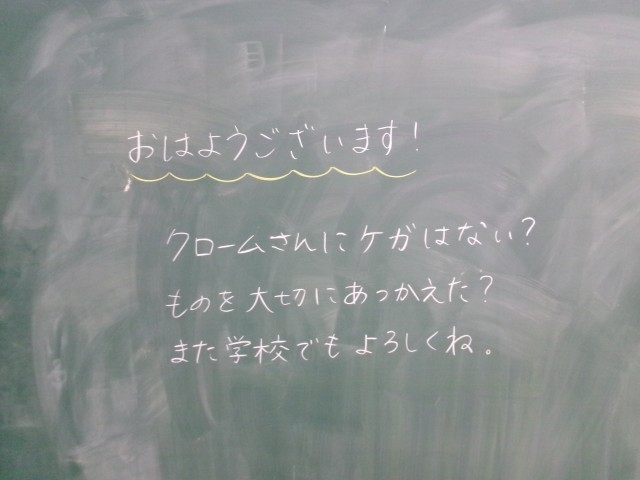 おはようございます!
クロームさんにケガはない?
ものを大切にあつかえた?
また学校でもよろしくね。